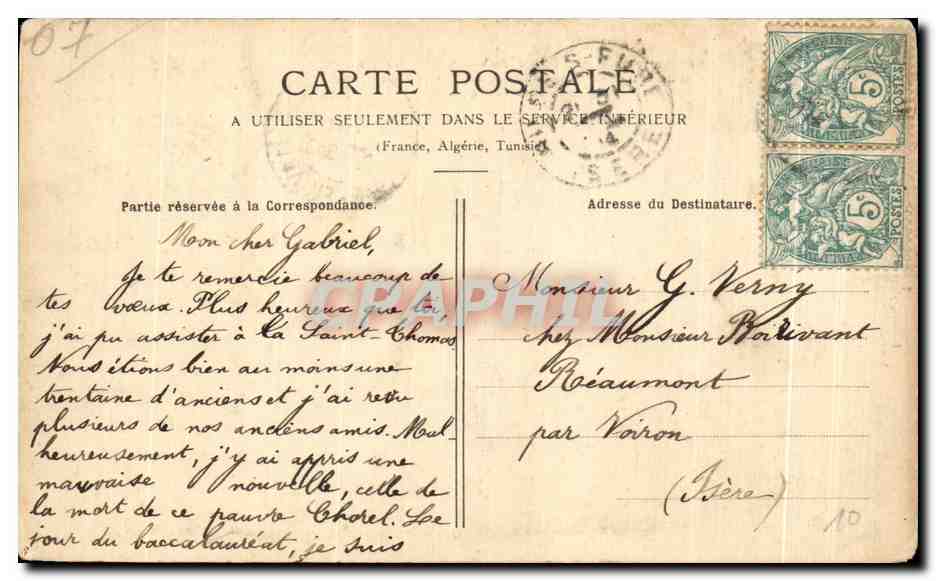 07
CARTE POSTALE
A UTILISER SEULEMENT DANS LE SERVICE INTÉRIEUR
(France, Algérie, Tunisie)
Partie réservée à la Correspondance.
Mon cher Gabriel,
Je te remercie beaucoup de
tes vœux. Plus heureux que toi,
j'ai pu assister à la Saint-Thomas
Nous étions bien au moins une
trentaine d'anciens et j'ai revu
plusieurs de nos anciens amis. Mal-
heureusement, j'y ai appris une
mauvaise nouvelle, celle de
la mort de ce pauvre Chorel. Le
jour du baccalauréat, je suis
Adresse du Destinataire.
Monsieur G. Verny
chez Monsieur Boirivant
Réaumont
par Voiron
(Isère)
10
5c
POSTES
5c
POSTES
S-FURE
ISERE
CPAPHIL